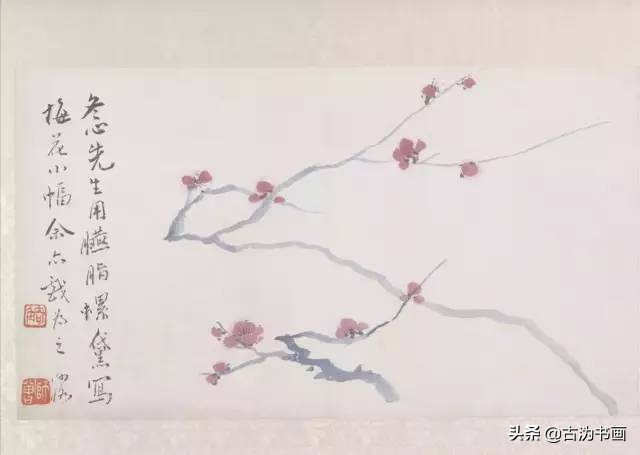 冬心先生用臙脂螺黛寫
梅花小幅余亦戲為之
師曾
头条 @古沩书画